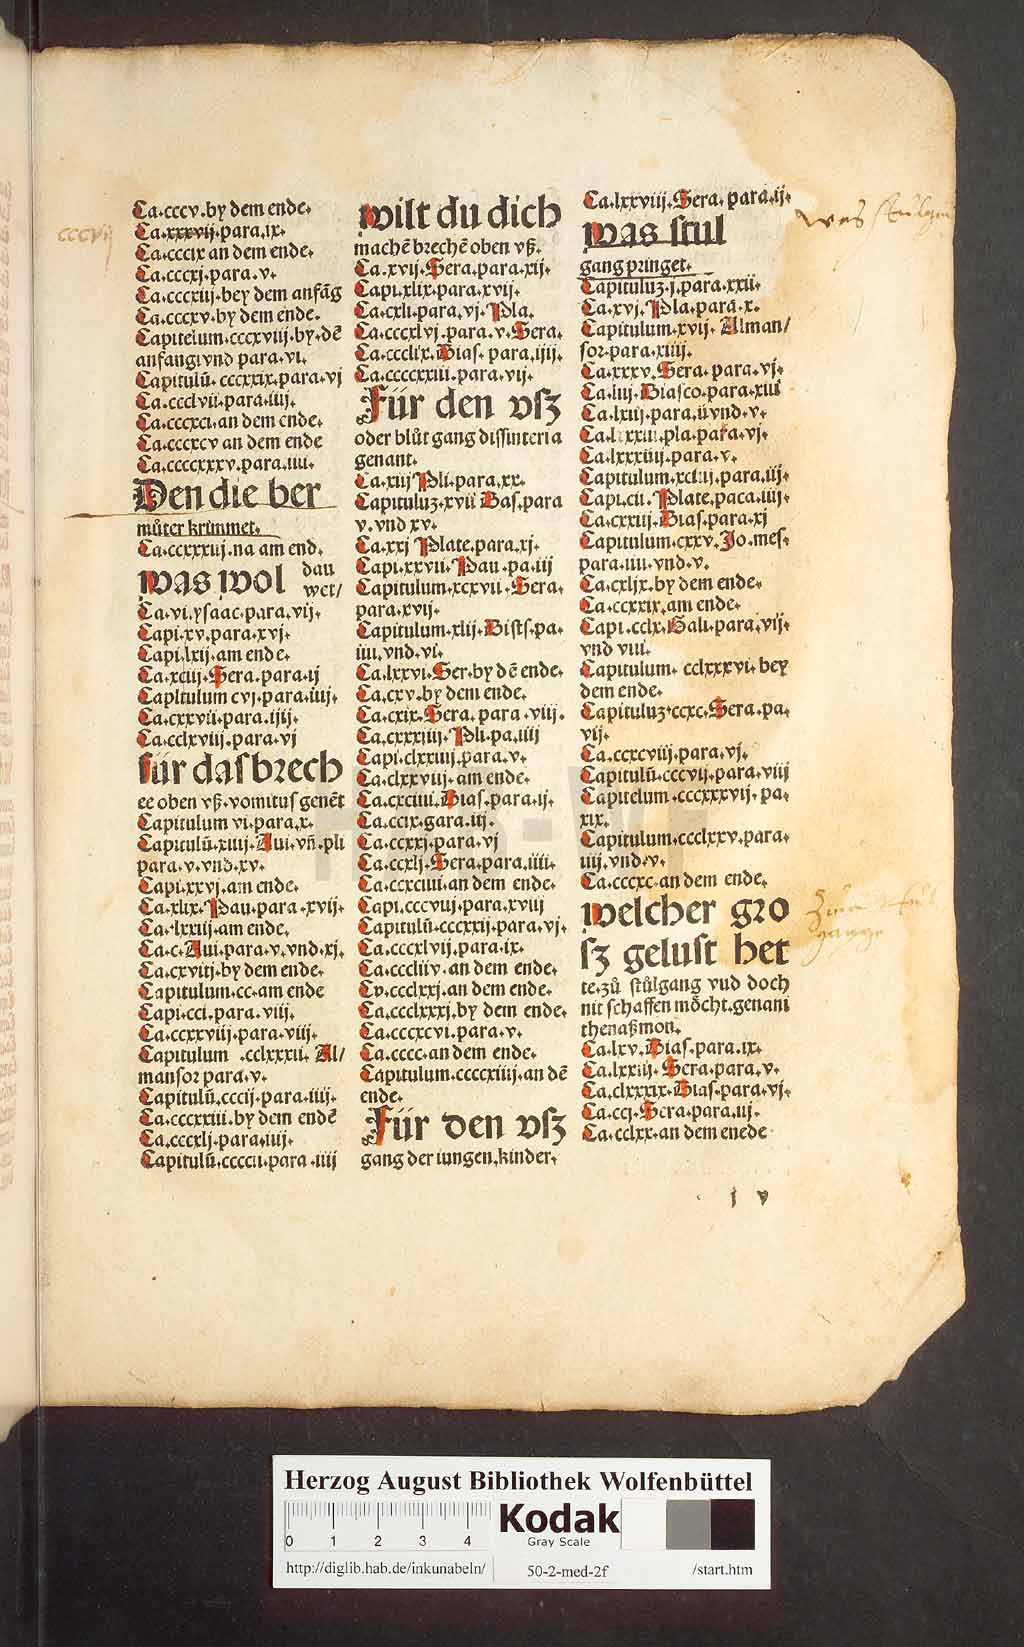 Ca.cccv.by dem ende.
cccvij
Ca.xxxvij.para.ix.
Ca.cccix an dem ende.
Ca.cccxj.para.v.
Ca.cccxiij.bey dem anfāg
Ca.cccxv.by dem ende.
Capitelum.cccxviij.by.dē
anfang vnd para.vi.
Capitulū.cccxxix.para.vj
Ca.ccclvii.para.iiij.
Ca.cccxci.an dem ende.
Ca.cccxcv an dem ende
Ca.ccccxxxv.para.iiii.
Den die ber
můter krümmet.
Ca.ccxxxiij.na am end.
was wol dau
wet/
Ca.vi.ysaac.para.vij.
Capi.xv.para.xvj.
Capi.lxij.am ende.
Ca.xciij.Sera.para.ij
Capitulum cvj.para.iiij.
Ca.cxxvii.para.ijij.
Ca.cclxviij.para.vj
für das brech
ee oben vß.vomitus genēt
Capitulum vi.para.x.
Capitulū.xiiij.Aui.vñ.pli
para.v.vnd.xv.
Capi.xxvj.am ende.
Ca.xlix.Pau.para.xvij.
Ca.lxxiij.am ende.
Ca.c.Aui.para.v.vnd.xj.
Ca.cxviij.by dem ende.
Capitulum.cc.am ende
Capi.cci.para.viij.
Ca.ccxxvij.para.viij.
Capitulum .cclxxxii. Al/
mansor para.v.
Capitulū.cccij.para.iiij.
Ca.cccxxiii.by dem endē
Ca.cccxlj.para.iiij.
Capitulū.ccccii.para.iiij
wilt du dich
machē brechē oben vß.
Ca.xvij.Sera.para.xij.
Capi.xlix.para.xvij.
Ca.cxli.para.vj.Pla.
Ca.cccxlvj.para.v.Sera.
Ca.ccclix.Bias.para.ijij.
Ca.ccccxxiii.para.vij.
Für den vsz
oder blůt gang dissinteria
genant.
Ca.xiij Pli.para.xx.
Capituluz.xvii Bas.para
v.vnd xv.
Ca.xxj Plate.para.xj.
Capi.xxvii.Pau.pa.iij
Capitulum.xcxvii.Sera.
para.xvij.
Capitulum.xlij.Bists.pa.
iii.vnd.vi.
Ca.lxxvi.Ser.by dē ende.
Ca.cxv.by dem ende.
Ca.cxix.Sera.para.viij.
Ca.cxxxiiij.Pli.pa.iiij
Capi.clxxiij.para.v.
Ca.clxxviij.am ende.
Ca.cxciiii.Bias.para.ij.
Ca.ccix.gara.iij.
Ca.ccxxj.para.vj
Ca.ccxlj.Sera.para.iiii.
Ca.ccxciiii.an dem ende.
Capi.cccviij.para.xviij
Capitulū.cccxxij.para.vj.
Ca.cccxlvij.para.ix.
Ca.cccliiv.an dem ende.
Cv.ccclxxj.an dem ende.
Ca.ccclxxxj.by dem ende.
Ca.cccxcvi.para.v.
Ca.cccc.an dem ende.
Capitulum.ccccxiiij.an dē
ende.
Für den vsz
gang der iungen.kinder.
Ca.lxxviij.Sera.para.ij.
was stul
gang pringet.
Capituluz.j.para.xxii.
Ca.xvj.Pla.para.x.
Capitulum.xvij.Alman/
sor.para.xiiij.
Ca.xxxv.Sera.para.vj.
Ca.liij.Biasco.para.xiii
Ca.lxiij.para.ii vnd.v.
Ca.lxxiii.pla.para.vj.
Ca.lxxxiiij.para.v.
Capitulum.xciiij.para.iij.
Capi.cii.Plate.paca.iiij.
Ca.cxxiij.Bias.para.xj
Capitulum.cxxv.Jo.mes.
para.iiii.vnd.v.
Ca.cxljx.by dem ende.
Ca.ccxxix.am ende.
Capi.cclx.Hali.para.vij.
vnd viii.
Capitulum. cclxxxvi.bey
dem ende.
Capituluz.ccxc.Sera.pa.
vij.
Ca.ccxcviij.para.vj.
Capitulū.cccvij.para.viij
Capitelum.cccxxxvij.pa.
xix.
Capitulum.ccclxxv.para.
iiij.vnd.v.
Ca.cccxc.an dem ende.
welcher gro
sz gelust het
te.zů stůlgang vnd doch
nit schaffen möcht.genant
thenasmon.
Ca.lxv.Bias.para.ix.
Ca.lxxiij.Sera.para.v.
Ca.clxxxix.Bias.para.vj.
Ca.ccj.Scra.para.iij.
Ca.cclx.an dem enede
j v
Herzog August Bibliothek Wolfenbüttel
0 1 2 3 4
Kodak
Gray Scale
http://diglib.hab.de/inkunabeln/ 50-2-med-2f /start.htm